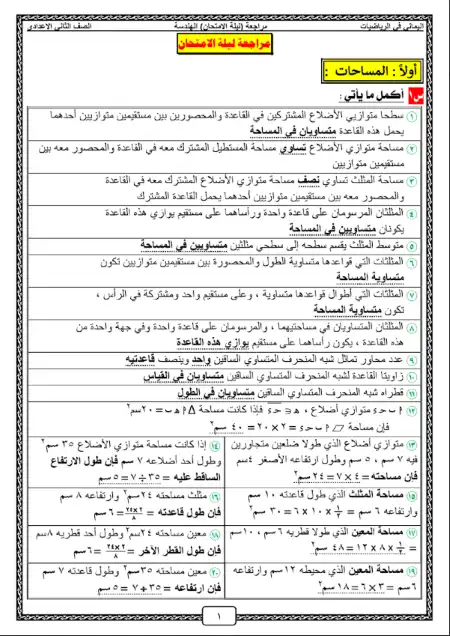 اليماني في الرياضيات مراجعة (ليلة الامتحان) الهندسة الصف الثاني الاعدادي
مراجعة ليلة الامتحان
أولاً : المساحات :
س١ أكمل ما يأتي :
١ سطحا متوازيي الأضلاع المشتركين في القاعدة والمحصورين بين مستقيمين متوازيين أحدهما
يحمل هذه القاعدة متساويان في المساحة
٢ مساحة متوازي الأضلاع تساوي مساحة المستطيل المشترك معه في القاعدة والمحصور معه بين
مستقيمين متوازيين
٣ مساحة المثلث تساوي نصف مساحة متوازي الأضلاع المشترك معه في القاعدة
والمحصور معه بين مستقيمين متوازيين أحدهما يحمل القاعدة المشترك
٤ المثلثان المرسومان على قاعدة واحدة ورأساهما على مستقيم يوازي هذه القاعدة
يكونان متساويين في المساحة
٥ متوسط المثلث يقسم سطحه إلى سطحي مثلثين متساويين في المساحة
٦ المثلثات التي قواعدها متساوية الطول والمحصورة بين مستقيمين متوازيين تكون
متساوية المساحة
٧ المثلثات التي أطوال قواعدها متساوية ، وعلى مستقيم واحد ومشتركة في الرأس ،
تكون متساوية المساحة
٨ المثلثان المتساويان في مساحتيهما ، والمرسومان على قاعدة واحدة وفي جهة واحدة من
هذه القاعدة ، يكون رأساهما على مستقيم يوازي هذه القاعدة
٩ عدد محاور تماثل شبه المنحرف المتساوي الساقين واحد وينصف قاعدتيه
١٠ زاويتا القاعدة لشبه المنحرف المتساوي الساقين متساويان في القياس
١١ قطراه شبه المنحرف المتساوي الساقين متساويان في الطول
١٢ ا ب ح ء متوازي أضلاع ، ه ∈ ح ء فإذا كانت مساحة Δ ا ه ب = ٢٠سم٢
فإن مساحة ▱ ا ب ح ء = ٢ × ٢٠ = ٤٠ سم٢
١٣ متوازي أضلاع الذي طولا ضلعين متجاورين
فيه ٧ سم ، ٥ سم وطول ارتفاعه الأصغر ٤سم
فإن مساحته = ٤ × ٧ = ٢٤ سم٢
١٤ إذا كانت مساحة متوازي الأضلاع ٣٥ سم٢
وطول أحد أضلاعه ٧ سم فإن طول الارتفاع
الساقط عليه = ٣٥ ÷ ٧ = ٥ سم
١٥ مساحة المثلث الذي طول قاعدته ١٠ سم
وارتفاعه ٦ سم = ١/٢ × ١٠ × ٦ = ٣٠ سم٢
١٦ مثلث مساحته ٢٤سم٢ وارتفاعه ٨ سم
فإن طول قاعدته = ٢×٢٤/٨ = ٦ سم
١٧ مساحة المعين الذي طولا قطريه ٦سم ، ١٠سم
= ١/٢ × ٨ × ١٢ = ٤٨ سم٢
١٨ معين مساحته ٢٤سم٢ وطول أحد قطريه ٨سم
فإن طول القطر الآخر = ٢×٢٤/٨ = ٦ سم
١٩ مساحة المعين الذي محيطه ١٢ سم وارتفاعه
٦ سم = ٣ × ٦ = ١٨ سم٢
٢٠ معين مساحته ٣٥سم٢ وطول قاعدته ٧ سم
فإن ارتفاعه = ٣٥ ÷ ٧ = ٥ سم
١